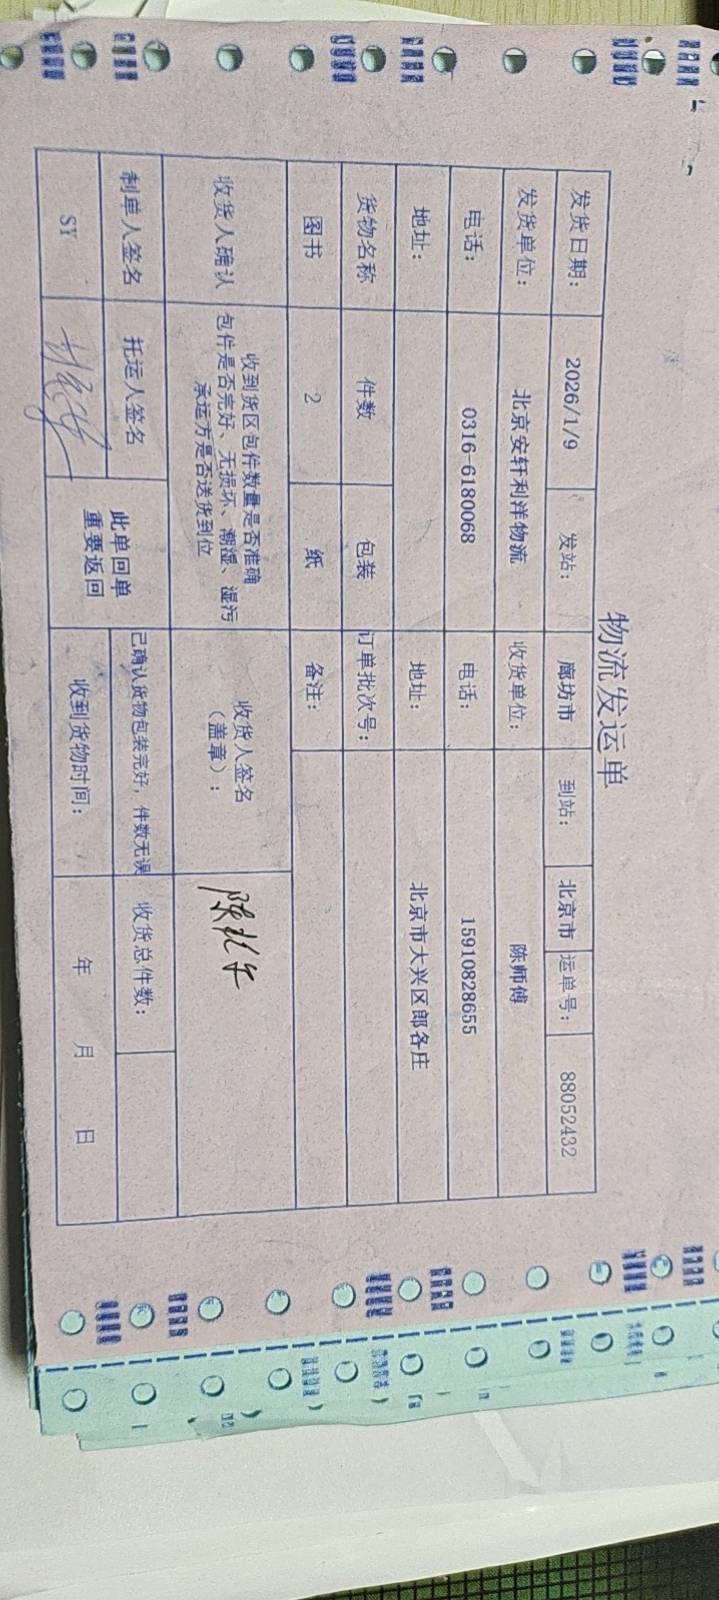 物流发运单
发货日期： 2026/1/9 发站： 廊坊市 到站： 北京市 运单号： 88052432
发货单位： 北京安轩利洋物流 收货单位： 陈师傅
电话： 0316-6180068 电话： 15910828655
地址： 地址： 北京市大兴区郎各庄
货物名称 件数 包装 订单批次号：
图书 2 纸 备注：
收货人确认
收到货区包件数量是否准确
包件是否完好、无损坏、潮湿、湿污
承运方是否送货到位
收货人签名
（盖章）：
制单人签名 托运人签名
此单回单
重要返回
已确认货物包装完好，件数无误 收货总件数：
SY 收到货物时间： 年 月 日